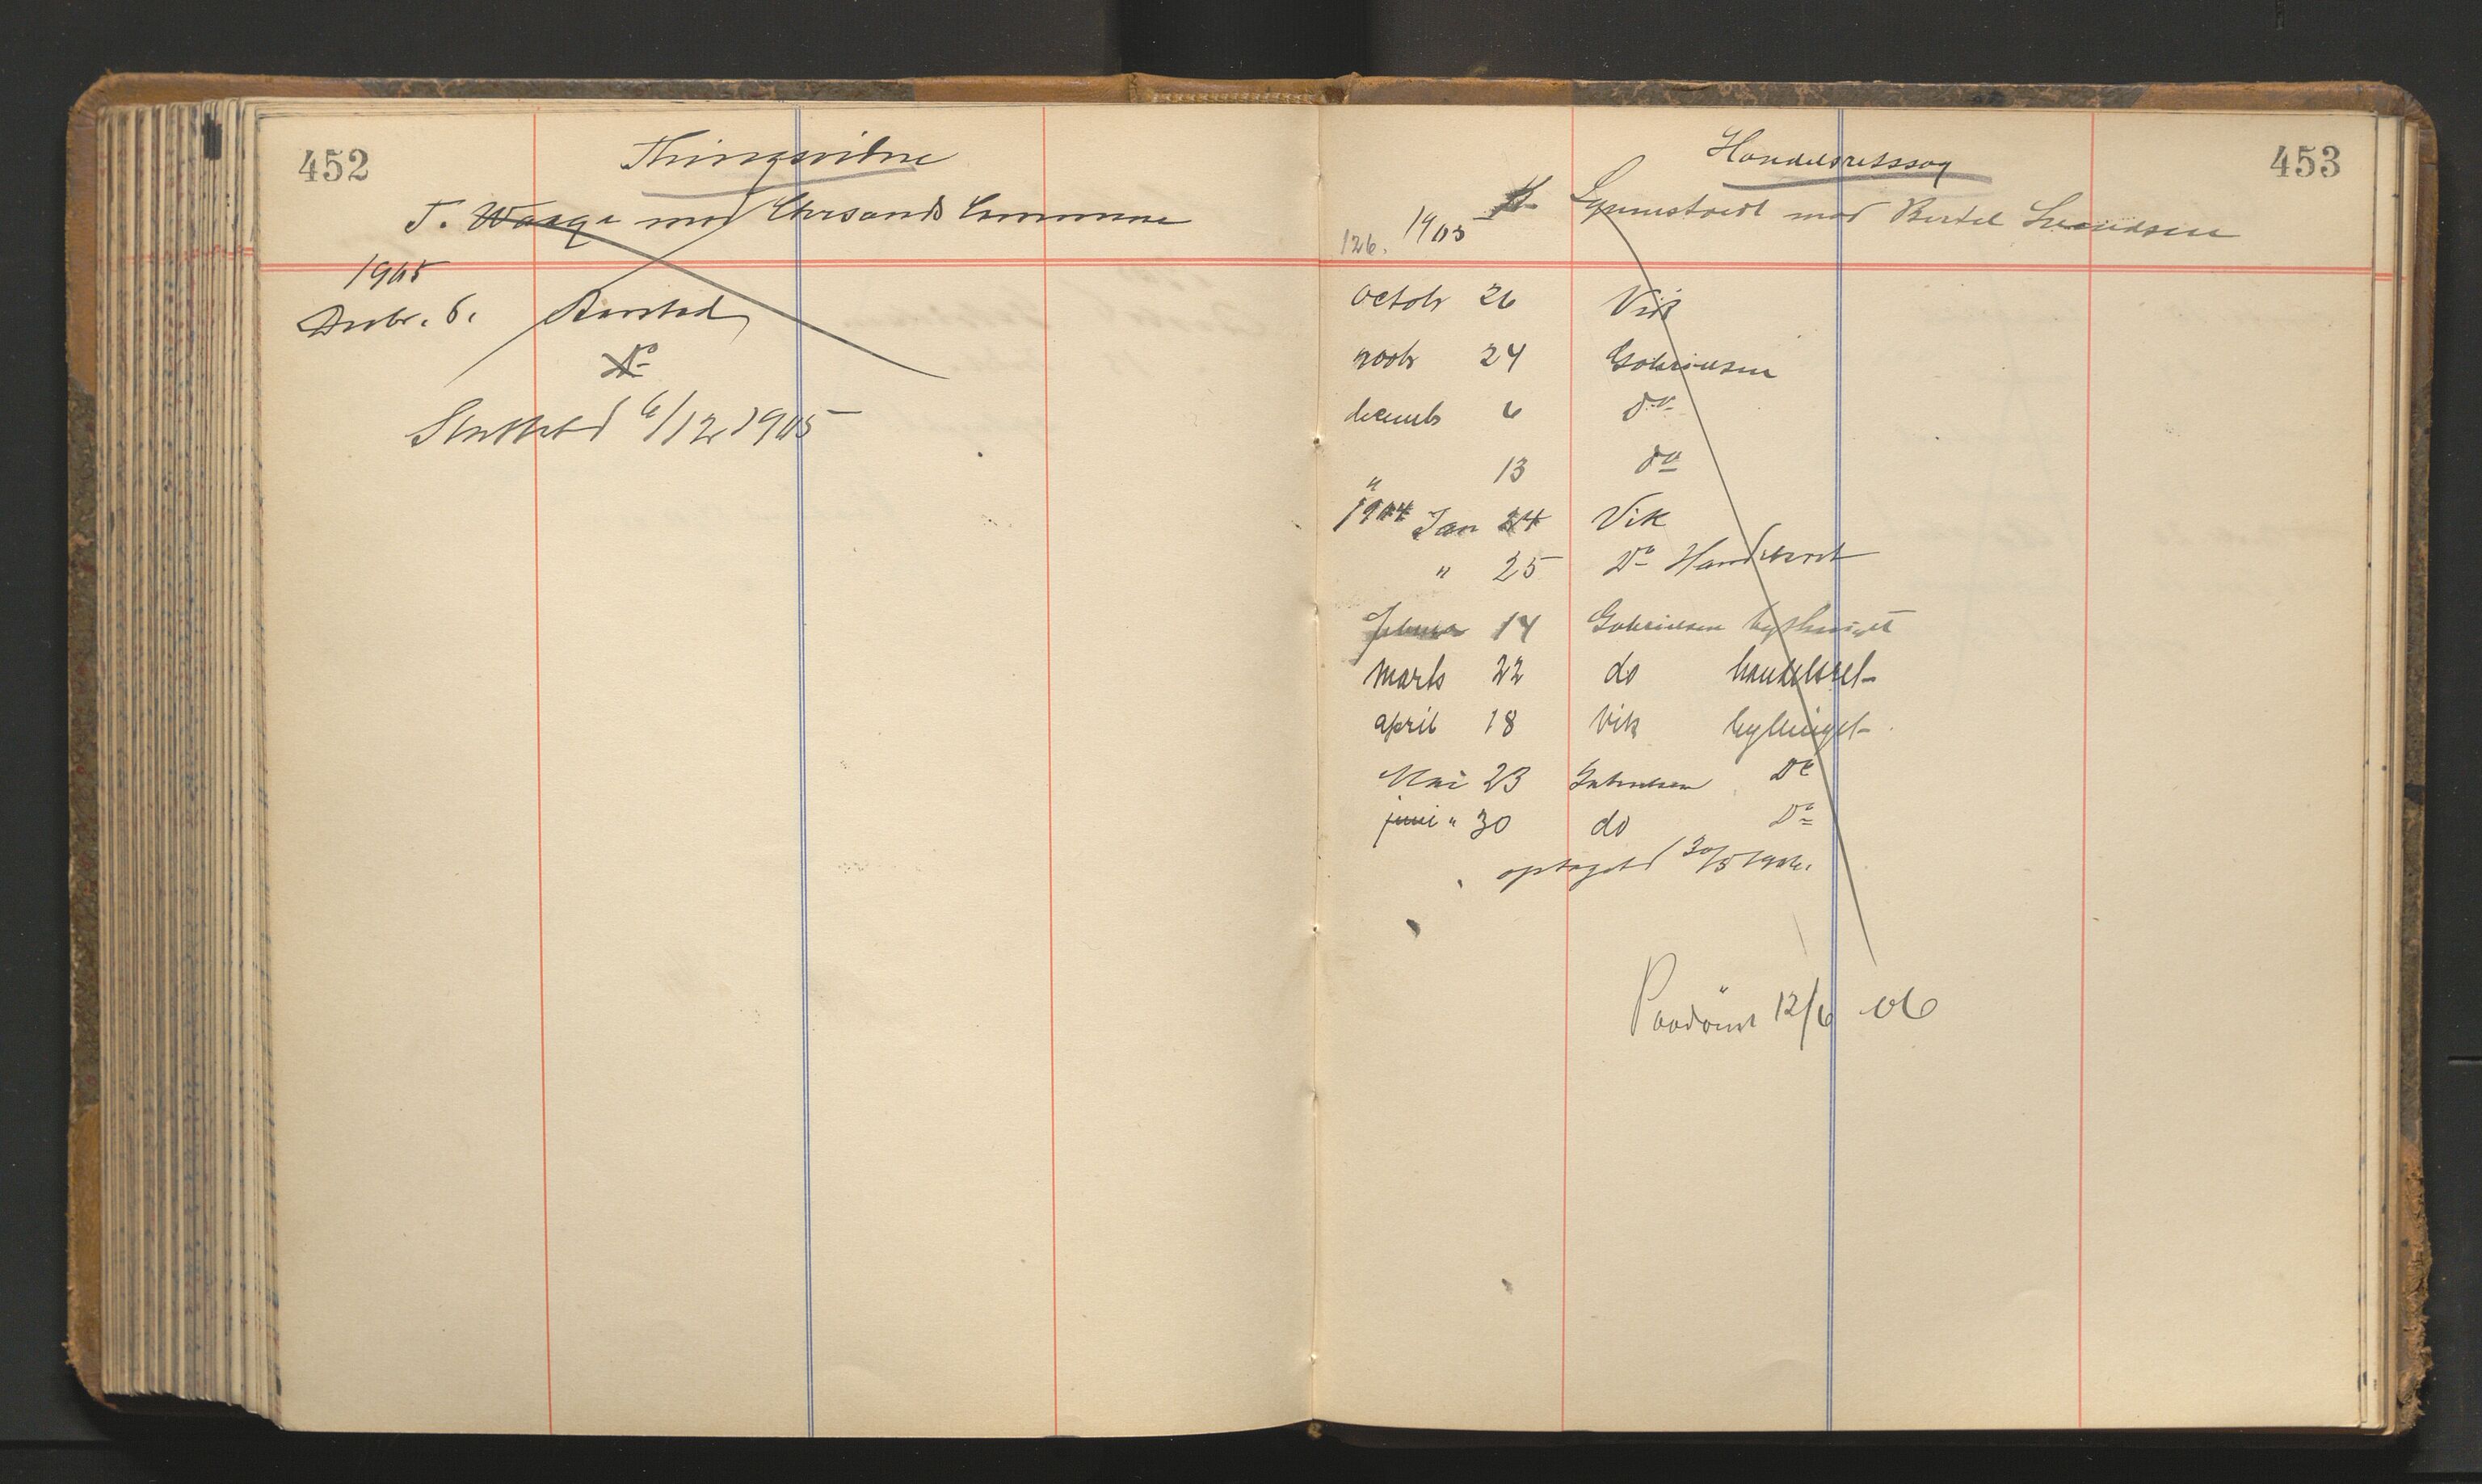 452
Thingsvidne
T. Waage mod Chrsands Commune
1905
Decbr. 6. Aarstad
No
Sluttet d 6/12 1905
453
Handelsretssag
126. 1905 mod Bertel Svendsen
octobr 26 Vik
novbr 24 Gabrielsen
decembr 6 do
" 13 do
Jan 24 Vik
" 25 Do Handelsret
Februar 14 Gabrielsen bythinget
marts 22 do handelsret
april 18 Vik bythinget
Mai 23 Gabrielsen Do
juni " 30 do Do
optaget d 30/5 1906.
Paadömt 12/6 06